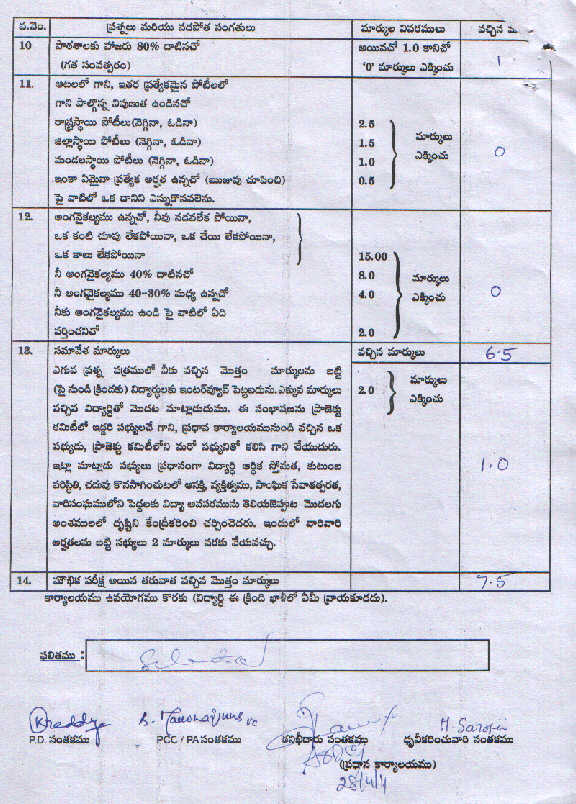 వ.నెం. ప్రశ్నలు మరియు పరపోత సంగతులు మార్కుల వివరములు వచ్చిన
10 పాఠశాలకు హాజరు 80% దాటినచో అయినచో 1.0 కానిచో 1
(గత సంవత్సరం) '0' మార్కులు ఎక్కించు
11. ఆటలలో గాని, ఇతర ప్రత్యేకమైన పోటీలలో
గాని పాల్గొన్న నిపుణుత ఉండినచో
రాష్ట్రస్థాయి పోటీలు (నెగ్గినా, ఓడినా) 2.5 మార్కులు
జిల్లాస్థాయి పోటీలు (నెగ్గినా, ఓడినా) 1.5 ఎక్కించు 0
మండలస్థాయి పోటీలు (నెగ్గినా, ఓడినా) 1.0
ఇంకా ఏమైనా ప్రత్యేక అర్హత ఉన్నచో (ఋజువు చూపించి) 0.5
పై వాటిలో ఒక దానిని ఎన్నుకొనవలెను.
12. అంగవైకల్యము ఉన్నచో, నీవు నడవలేక పోయినా,
ఒక కంటి చూపు లేకపోయినా, ఒక చేయి లేకపోయినా,
ఒక కాలు లేకపోయినా 15.00
నీ అంగవైకల్యము 40% దాటినచో 8.0 మార్కులు
నీ అంగవైకల్యము 40-30% మధ్య ఉన్నచో 4.0 ఎక్కించు 0
నీకు అంగవైకల్యము ఉండి పై వాటిలో ఏది
వర్తించనిచో 2.0
13. సమావేశ మార్కులు వచ్చిన మార్కులు 6.5
ఎగువ ప్రశ్న పత్రములో నీకు వచ్చిన మొత్తం మార్కులను బట్టి
(పై నుండి క్రిందకు) విద్యార్థులకు ఇంటర్వ్యూవ్ పెట్టబడును. ఎక్కువ మార్కులు 2.0 మార్కులు
వచ్చిన విద్యార్థితో మొదట మాట్లాడుదుము. ఈ సంభాషణను ప్రాజెక్టు ఎక్కించు
కమిటీలో ఇద్దరి సభ్యులచే గాని, ప్రధాన కార్యాలయమునుండి వచ్చిన ఒక
సభ్యుడు, ప్రాజెక్టు కమిటీలోని మరో సభ్యునితో కలిసి గాని చేయుదురు.
ఇట్లా మాట్లాడు సభ్యులు ప్రధానంగా విద్యార్థి ఆర్థిక స్తోమత, కుటుంబ
పరిస్థితి, చదువు కొనసాగించుటలో ఆసక్తి, వ్యక్తిత్వము, సాంఘిక సేవాతత్పరత, 1.0
వారిసంఘములోని పెద్దలకు విద్యా అవసరమును తెలియజెప్పుట మొదలగు
అంశములలో దృష్టిని కేంద్రీకరించి చర్చించెదరు. ఇందులో వారివారి
అర్హతలను బట్టి సభ్యులు 2 మార్కులు వరకు వేయవచ్చు.
14. మౌఖిక పరీక్ష అయిన తరువాత వచ్చిన మొత్తం మార్కులు 7.5
కార్యాలయము ఉపయోగము కొరకు (విద్యార్థి ఈ క్రింది ఖాళీలో ఏమీ వ్రాయకూడదు).
ఫలితము : Selected
P.D. సంతకము PCC / PA సంతకము తనిఖీదారు సంతకము ధృవీకరించువారి సంతకము
(ప్రధాన కార్యాలయము)
28/4/